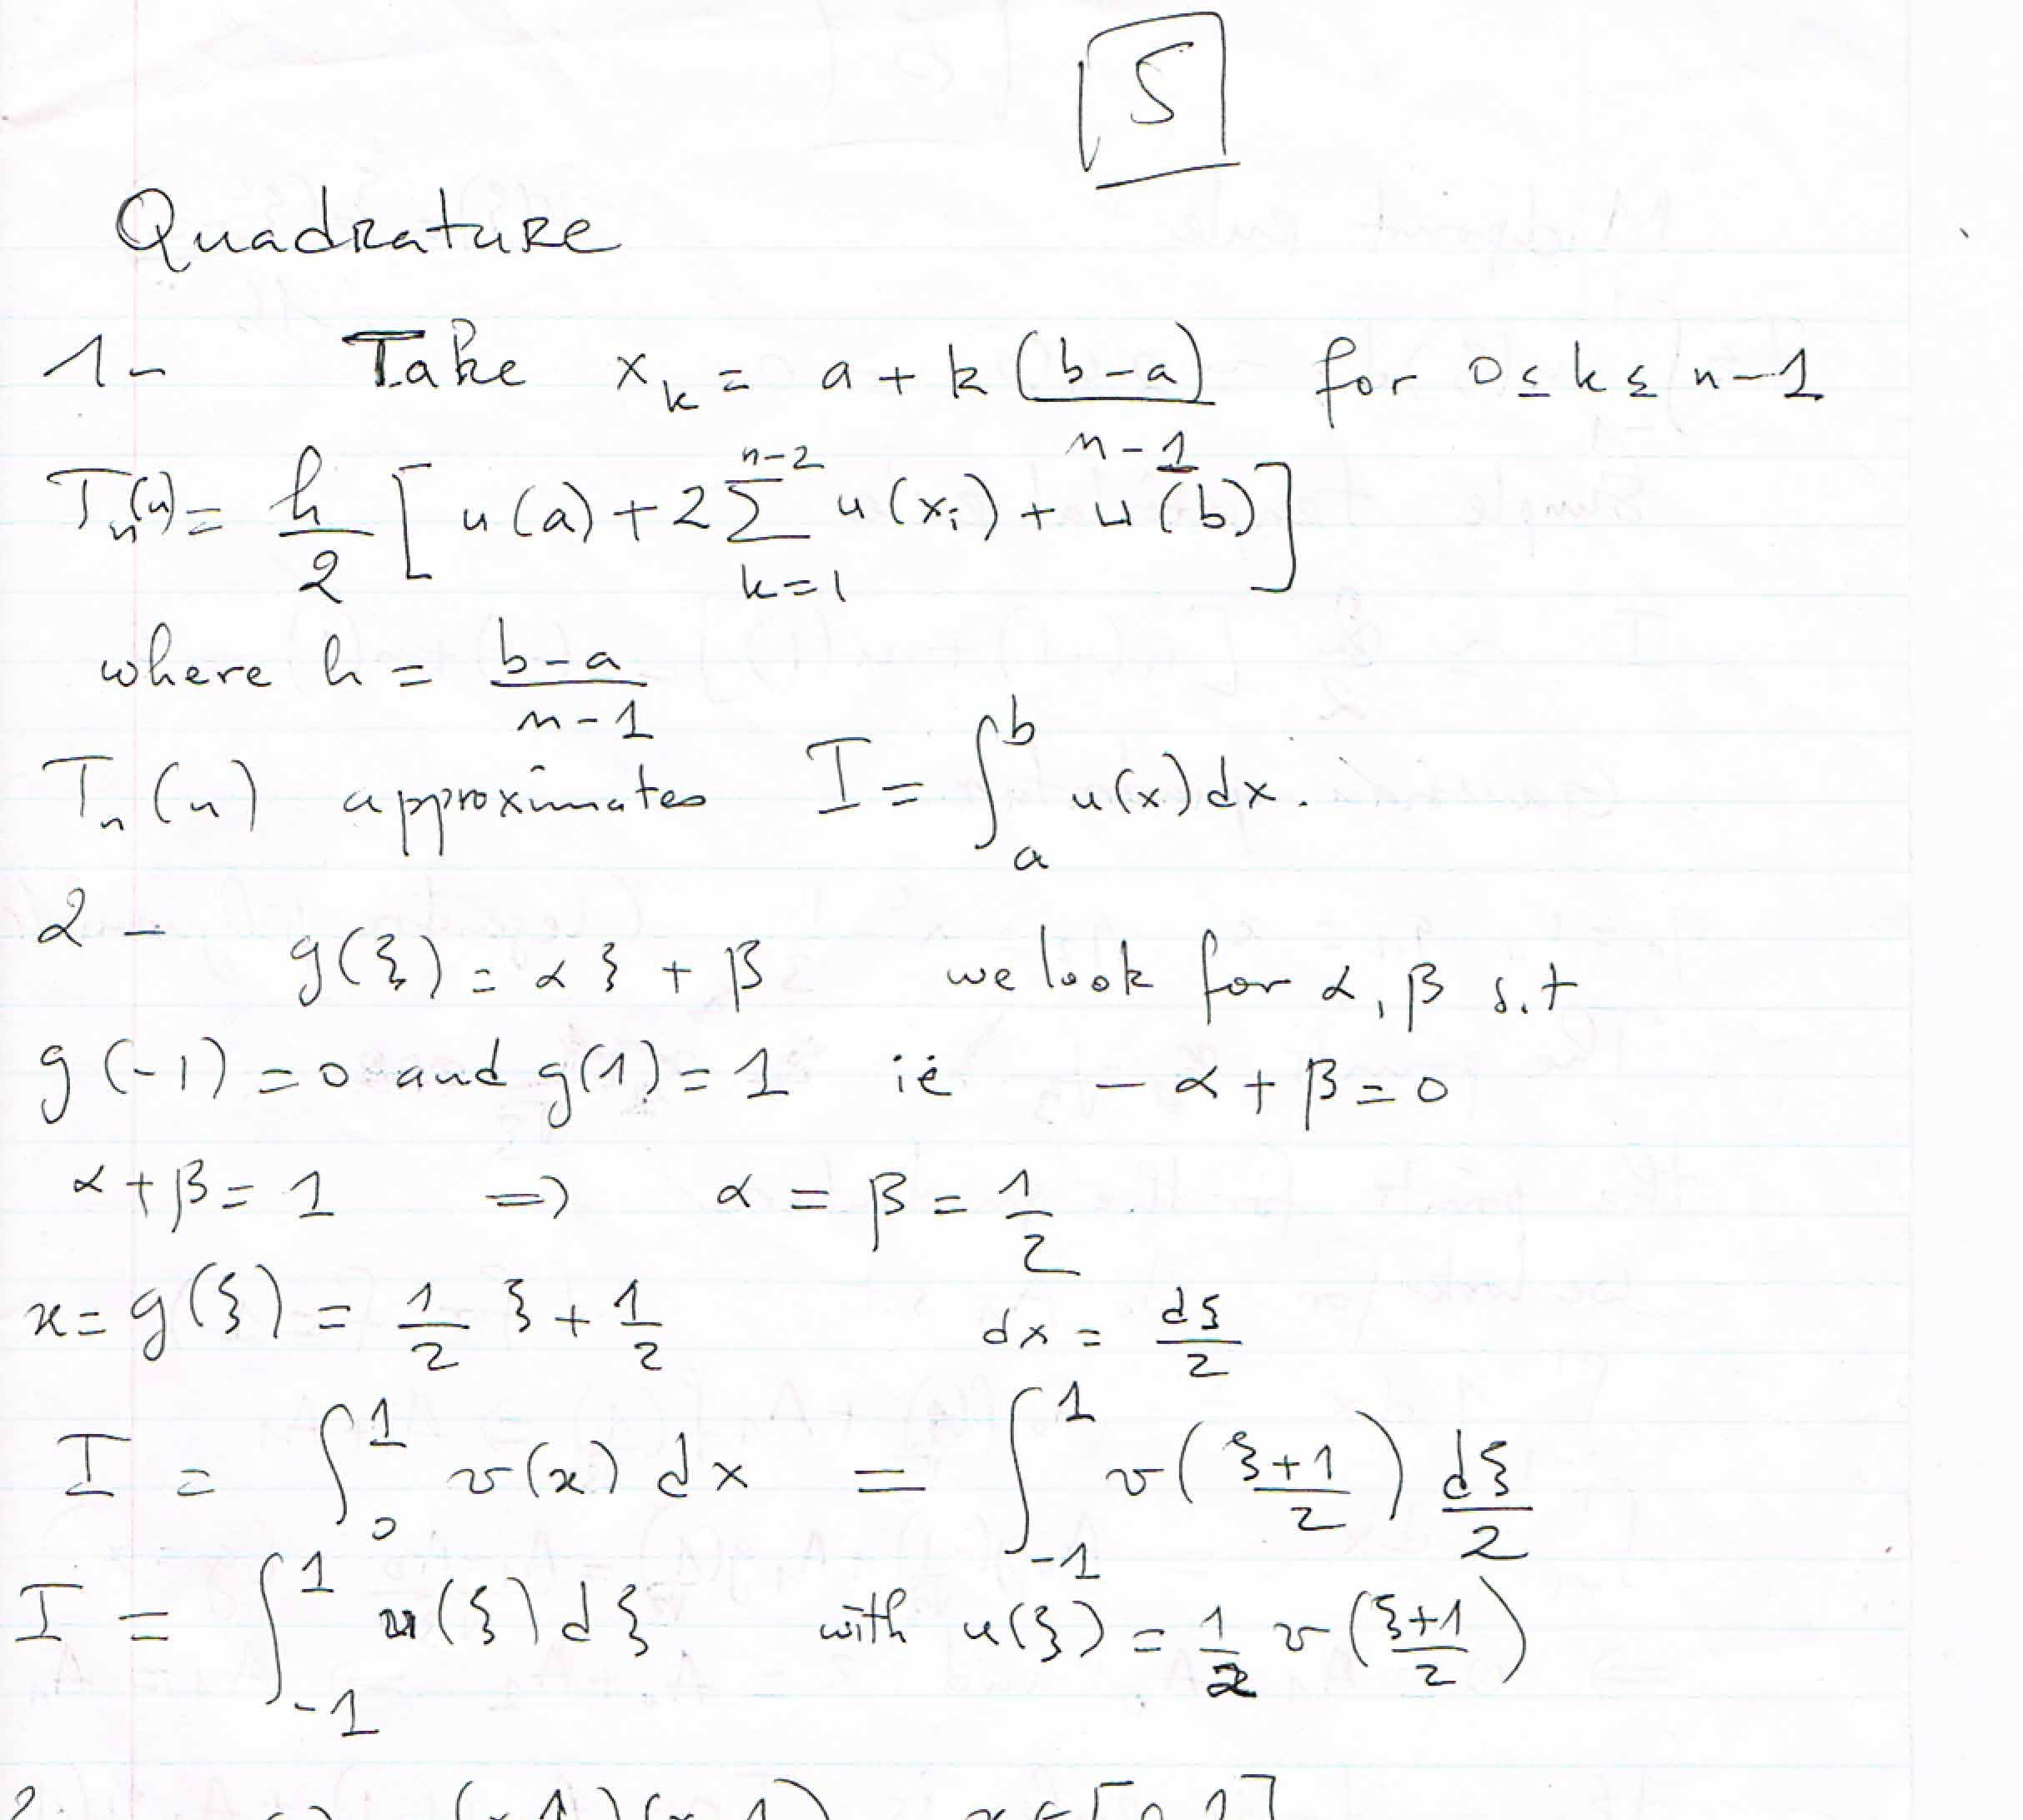 5
Quadrature
1- Take x_k = a + k (b-a)/(n-1) for 0 ≤ k ≤ n-1
T_n(u) = h/2 [ u(a) + 2 ∑_{k=1}^{n-2} u(x_i) + u(b) ]
where h = (b-a)/(n-1)
T_n(u) approximates I = ∫_a^b u(x) dx.
2- g(ξ) = α ξ + β we look for α, β s.t
g(-1) = 0 and g(1) = 1 ie - α + β = 0
α + β = 1 => α = β = 1/2
x = g(ξ) = 1/2 ξ + 1/2 dx = dξ/2
I = ∫_0^1 v(x) dx = ∫_{-1}^1 v((ξ+1)/2) dξ/2
I = ∫_{-1}^1 u(ξ) dξ with u(ξ) = 1/2 v((ξ+1)/2)